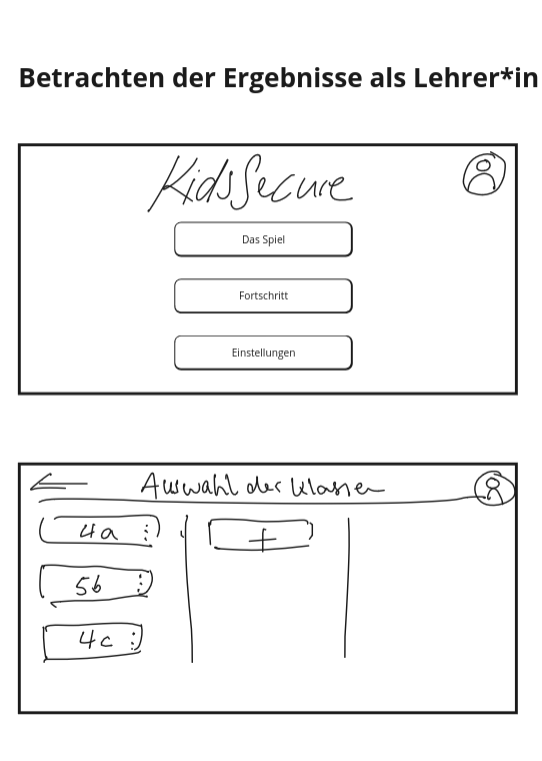 Betrachten der Ergebnisse als Lehrer*in
KidsSecure
Das Spiel
Fortschritt
Einstellungen
Auswahl der Klassen
4a
+
5b
4c